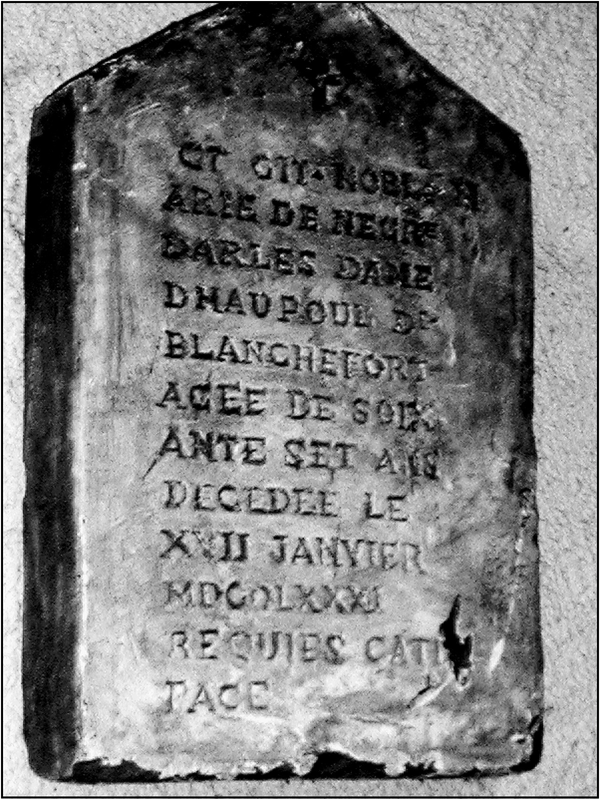 CT GIT NOBLe M
ARIE DE NEGRe
DARLES DAME
DHAUPOUL De
BLANCHEFORT
AGEE DE SOIX
ANTE SET ANS
DECEDEE LE
XVII JANVIER
MDCOLXXXI
REQUIES CATIN
PACE